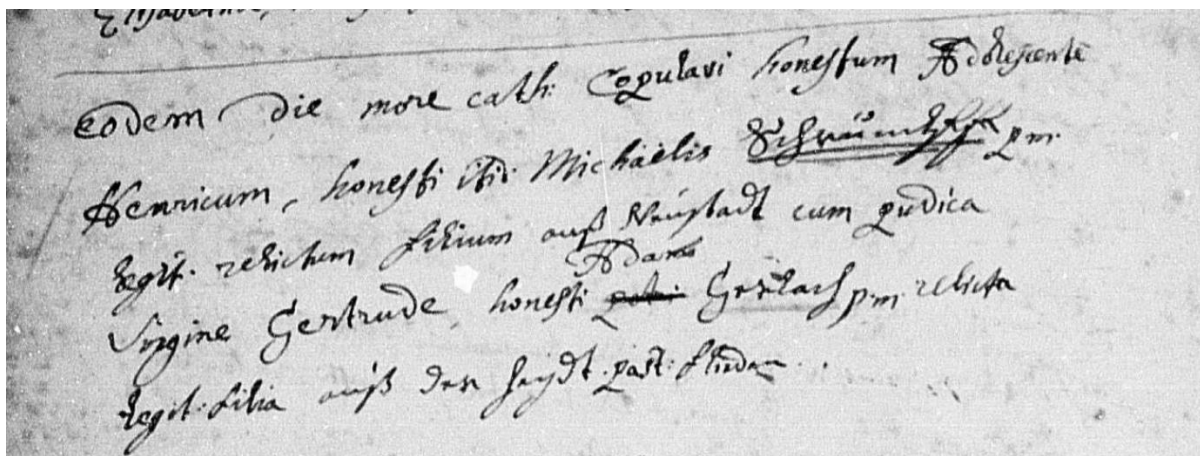 Eodem die more cath: Copulavi honestum Adolescente
Henricum, honesti itid. Michaelis pm.
legit. relictum filium auß Neustadt cum pudica
Adami
Virgine Gertrude honesti petri Gerlach pm. relicta
legit. filia auß der Heydt. past: flieden